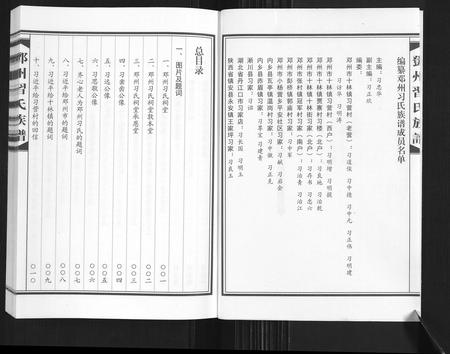 鄧州習氏族譜
编纂邓州习氏族谱成员名单
主编：习忠华
副主编：习正欣
编委：
习访华 习明涛
邓州市十林镇习营村（老营）：习道俊 习中德 习中元 习正伟 习明建
邓州市十林镇习营村（西户）：习明增 习明报
邓州市十林镇贾寨村习楼（北户）：习良地 习治乾
邓州市十林镇十林街习家（南户）：习存书 习志六
邓州市张村镇冠军村习家（南户）：习治青 习治江
邓州市彭桥镇郭洼村习家：习中军
邓州市小杨营乡安众社区习家：习献 习岩会
内乡县瓦亭镇温岗村习家：习中俶 习正克
内乡县赤眉镇习家：习景宝 习建青
淅川县习家：习浩
湖北省丹江口市习家店：习长国 习明玉
陕西省镇安县永安镇王家坪习家：习良玉
总目录
一、图片及题词
一、邓州习氏祠堂 〇〇一
二、邓州习氏祠堂敦本堂 〇〇二
三、邓州习氏祠堂承恩堂 〇〇三
四、习凿齿公像 〇〇四
五、习远公像 〇〇五
六、习思敬公像 〇〇六
七、齐心老人为邓州习氏的题词 〇〇七
八、习近平给邓州市的题词 〇〇八
九、习近平给十林镇的题词 〇〇九
十、习近平给习营村的回信 〇一〇
鄧州習氏族譜